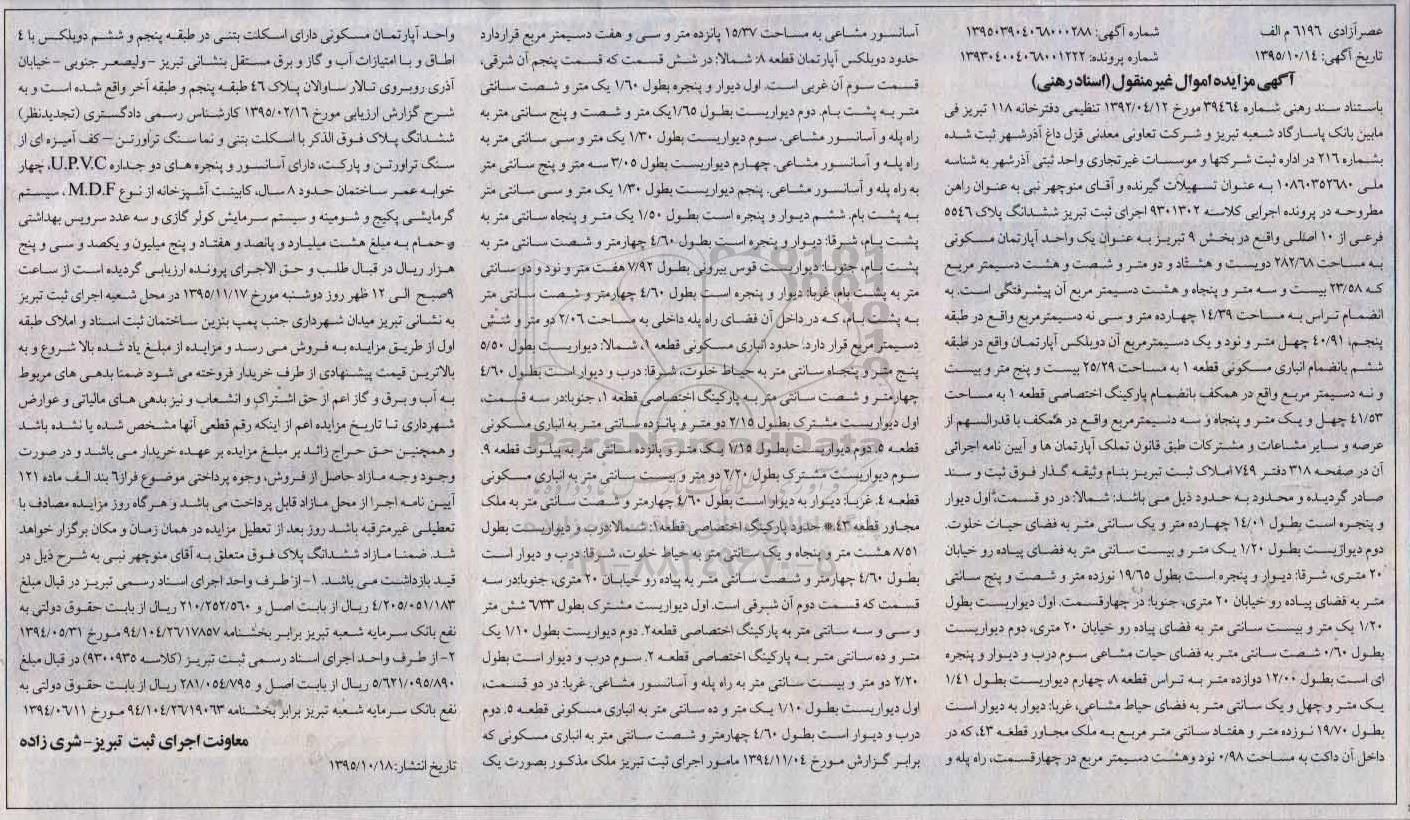 عصرآزادی ٦١٩٦ م الف
شماره آگهی: ١٣٩٥٠٣٩٠٤٠٦٨٠٠٠٢٨٨
تاریخ آگهی: ١٣٩٥/١٠/١٤
شماره پرونده: ١٣٩٣٠٤٠٠٤٠٦٨٠٠١٢٢٢
آگهی مزایده اموال غیرمنقول (اسناد رهنی)
باستناد سند رهنی شماره ٣٩٤٦٤ مورخ ١٣٩٢/٠٤/١٢ تنظیمی دفترخانه ١١٨ تبریز فی
مابین بانک پاسارگاد شعبه تبریز و شرکت تعاونی معدنی قزل داغ آذرشهر ثبت شده
بشماره ٢١٦ در اداره ثبت شرکتها و موسسات غیرتجاری واحد ثبتی آذرشهر به شناسه
ملی ١٠٨٦٠٣٥٢٦٨٠ به عنوان تسهیلات گیرنده و آقای منوچهر نبی به عنوان راهن
مطروحه در پرونده اجرایی کلاسه ٩٣٠١٣٠٢ اجرای ثبت تبریز ششدانگ پلاک ٥٥٤٦
فرعی از ١٠ اصلی واقع در بخش ٩ تبریز به عنوان یک واحد آپارتمان مسکونی
به مساحت ٢٨٢/٦٨ دویست و هشتاد و دو متر و شصت و هشت دسیمتر مربع
که ٢٣/٥٨ بیست و سه متر و پنجاه و هشت دسیمتر مربع آن پیشرفتگی است. به
انضمام تراس به مساحت ١٤/٣٩ چهارده متر و سی نه دسیمترمربع واقع در طبقه
پنجم، ٤٠/٩١ چهل متر و نود و یک دسیمترمربع آن دوبلکس آپارتمان واقع در طبقه
ششم بانضمام انباری مسکونی قطعه ١ به مساحت ٢٥/٢٩ بیست و پنج متر و بیست
و نه دسیمتر مربع واقع در همکف بانضمام پارکینگ اختصاصی قطعه ١ به مساحت
٤١/٥٣ چهل و یک متر و پنجاه و سه دسیمترمربع واقع در همکف با قدرالسهم از
عرصه و سایر مشاعات و مشترکات طبق قانون تملک آپارتمان ها و آیین نامه اجرائی
آن در صفحه ٣١٨ دفتر ٧٤٩ املاک ثبت تبریز بنام وثیقه گذار فوق ثبت و سند
صادر گردیده و محدود به حدود ذیل می باشد: شمالا: در دو قسمت: اول دیوار
و پنجره است بطول ١٤/٠١ چهارده متر و یک سانتی متر به فضای حیات خلوت.
دوم دیواریست بطول ١/٢٠ یک متر و بیست سانتی متر به فضای پیاده رو خیابان
٢٠ متری، شرقا: دیوار و پنجره است بطول ١٩/٦٥ نوزده متر و شصت و پنج سانتی
متر به فضای پیاده رو خیابان ٢٠ متری، جنوبا: در چهارقسمت. اول دیواریست بطول
١/٢٠ یک متر و بیست سانتی متر به فضای پیاده رو خیابان ٢٠ متری، دوم دیواریست
بطول ٠/٦٠ شصت سانتی متر به فضای حیات مشاعی سوم درب و دیوار و پنجره
ای است بطول ١٢/٠٠ دوازده متر به تراس قطعه ٨، چهارم دیواریست بطول ١/٤١
یک متر و چهل و یک سانتی متر به فضای حیاط مشاعی، غربا: دیوار به دیوار است
بطول ١٩/٧٠ نوزده متر و هفتاد سانتی متر مربع به ملک مجاور قطعه ٤٣، که در
داخل آن داکت به مساحت ٠/٩٨ نود وهشت دسیمتر مربع در چهارقسمت، راه پله و
آسانسور مشاعی به مساحت ١٥/٣٧ پانزده متر و سی و هفت دسیمتر مربع قراردارد
حدود دوبلکس آپارتمان قطعه ٨: شمالا: در شش قسمت که قسمت پنجم آن شرقی،
قسمت سوم آن غربی است. اول دیوار و پنجره بطول ١/٦٠ یک متر و شصت سانتی
متر به پشت بام. دوم دیواریست بطول ١/٦٥ یک متر و شصت و پنج سانتی متر به
راه پله و آسانسور مشاعی. سوم دیواریست بطول ١/٣٠ یک متر و سی سانتی متر به
راه پله و آسانسور مشاعی. چهارم دیواریست بطول ٣/٠٥ سه متر و پنج سانتی متر
به راه پله و آسانسور مشاعی. پنجم دیواریست بطول ١/٣٠ یک متر و سی سانتی متر
به پشت بام. ششم دیوار و پنجره است بطول ١/٥٠ یک متر و پنجاه سانتی متر به
پشت بام، شرقا: دیوار و پنجره است بطول ٤/٦٠ چهارمتر و شصت سانتی متر به
پشت بام، جنوبا: دیواریست قوس بیرونی بطول ٧/٩٢ هفت متر و نود و دو سانتی
متر به پشت بام، غربا: دیوار و پنجره است بطول ٤/٦٠ چهارمتر و شصت سانتی متر
به پشت بام، که در داخل آن فضای راه پله داخلی به مساحت ٢/٠٦ دو متر و شش
دسیمتر مربع قرار دارد. حدود انباری مسکونی قطعه ١، شمالا: دیواریست بطول ٥/٥٠
پنج متر و پنجاه سانتی متر به حیاط خلوت، شرقا: درب و دیوار است بطول ٤/٦٠
چهارمتر و شصت سانتی متر به پارکینگ اختصاصی قطعه ١، جنوبا در سه قسمت،
اول دیواریست مشترک بطول ٢/١٥ دو متر و پانزده سانتی متر به انباری مسکونی
قطعه ٥. دوم دیواریست بطول ١/١٥ یک متر و پانزده سانتی متر به پیلوت قطعه ٩.
سوم دیواریست مشترک بطول ٢/٢٠ دو متر و بیست سانتی متر به انباری مسکونی
قطعه ٤. غربا: دیوار به دیوار است بطول ٤/٦٠ چهارمتر و شصت سانتی متر به ملک
مجاور قطعه ٤٣.* حدود پارکینگ اختصاصی قطعه ١: شمالا: درب و دیواریست بطول
٨/٥١ هشت متر و پنجاه و یک سانتی متر به حیاط خلوت، شرقا: درب و دیوار است
بطول ٤/٦٠ چهارمتر و شصت سانتی متر به پیاده رو خیابان ٢٠ متری، جنوبا: در سه
قسمت که قسمت دوم آن شرقی است. اول دیواریست مشترک بطول ٦/٣٣ شش متر
و سی و سه سانتی متر به پارکینگ اختصاصی قطعه ٢. دوم دیواریست بطول ١/١٠ یک
متر و ده سانتی متر به پارکینگ اختصاصی قطعه ٢. سوم درب و دیوار است بطول
٢/٢٠ دو متر و بیست سانتی متر به راه پله و آسانسور مشاعی. غربا: در دو قسمت،
اول دیواریست بطول ١/١٠ یک متر و ده سانتی متر به انباری مسکونی قطعه ٥. دوم
درب و دیوار است بطول ٤/٦٠ چهارمتر و شصت سانتی متر به انباری مسکونی که
برابر گزارش مورخ ١٣٩٤/١١/٠٤ مامور اجرای ثبت تبریز ملک مذکور بصورت یک
واحد آپارتمان مسکونی دارای اسکلت بتنی در طبقه پنجم و ششم دوبلکس با ٤
اطاق و با امتیازات آب و گاز و برق مستقل بنشانی تبریز - ولیعصر جنوبی - خیابان
آذری روبروی تالار ساوالان پلاک ٤٦ طبقه پنجم و طبقه آخر واقع شده است و به
شرح گزارش ارزیابی مورخ ١٣٩٥/٠٢/١٦ کارشناس رسمی دادگستری (تجدیدنظر)
ششدانگ پلاک فوق الذکر با اسکلت بتنی و نما سنگ تراورتن - کف آمیزه ای از
سنگ تراورتن و پارکت، دارای آسانسور و پنجره های دو جداره U.P.V.C، چهار
خوابه عمر ساختمان حدود ٨ سال، کابینت آشپزخانه از نوع M.D.F ، سیستم
گرمایشی پکیج و شومینه و سیستم سرمایش کولر گازی و سه عدد سرویس بهداشتی
و حمام به مبلغ هشت میلیارد و پانصد و هفتاد و پنج میلیون و یکصد و سی و پنج
هزار ریال در قبال طلب و حق الاجرای پرونده ارزیابی گردیده است از ساعت
٩صبح الی ١٢ ظهر روز دوشنبه مورخ ١٣٩٥/١١/١٧ در محل شعبه اجرای ثبت تبریز
به نشانی تبریز میدان شهرداری جنب پمپ بنزین ساختمان ثبت اسناد و املاک طبقه
اول از طریق مزایده به فروش می رسد و مزایده از مبلغ یاد شده بالا شروع و به
بالاترین قیمت پیشنهادی از طرف خریدار فروخته می شود ضمنا بدهی های مربوط
به آب و برق و گاز اعم از حق اشتراک و انشعاب و نیز بدهی های مالیاتی و عوارض
شهرداری تا تاریخ مزایده اعم از اینکه رقم قطعی آنها مشخص شده یا نشده باشد
و همچنین حق حراج زائد بر مبلغ مزایده بر عهده خریدار می باشد و در صورت
وجود وجه مازاد حاصل از فروش، وجوه پرداختی موضوع فراز٦ بند الف ماده ١٢١
آیین نامه اجرا از محل مازاد قابل پرداخت می باشد و هر گاه روز مزایده مصادف با
تعطیلی غیرمترقبه باشد روز بعد از تعطیل مزایده در همان زمان و مکان برگزار خواهد
شد. ضمنا مازاد ششدانگ پلاک فوق متعلق به آقای منوچهر نبی به شرح ذیل در
قید بازداشت می باشد. ١- از طرف واحد اجرای اسناد رسمی تبریز در قبال مبلغ
٤/٢٠٥/٠٥١/١٨٣ ریال از بابت اصل و ٢١٠/٢٥٢/٥٦٠ ریال از بابت حقوق دولتی به
نفع بانک سرمایه شعبه تبریز برابر بخشنامه ٩٤/١٠٤/٢٦/١٧٨٥٧ مورخ ١٣٩٤/٠٥/٣١
٢- از طرف واحد اجرای اسناد رسمی ثبت تبریز (کلاسه ٩٣٠٠٩٣٥) در قبال مبلغ
٥/٦٢١/٠٩٥/٨٩٠ ریال از بابت اصل و ٢٨١/٠٥٤/٧٩٥ ریال از بابت حقوق دولتی به
نفع بانک سرمایه شعبه تبریز برابر بخشنامه ٩٤/١٠٤/٢٦/١٩٠٦٣ مورخ ١٣٩٤/٠٦/١١
معاونت اجرای ثبت تبریز- شری زاده
تاریخ انتشار: ١٣٩٥/١٠/١٨
ParsNamadData
٠٢١-٨٨٣٤٩٦٧٠-٥